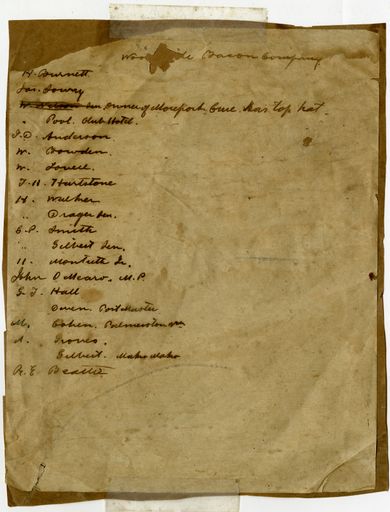 Bacon Company
H. Burnett
Jas. Lowry
Sen. Owner of Moreport. Cure has top hat.
" Pool. Club Hotel.
J. D. Anderson
W. Bowden.
W. Lovell.
T. H. Hartstone
H. Walker
" Prager Sen.
E. P. Smith
" Gilbert Sen.
H. Monteith Jr.
John O'Meara. M.P.
G. F. Hall
Owen. Postmaster
M. Cohen. Palmerston Nth
A. Groves.
Gilbert. Mako Mako
R. E. Beattie